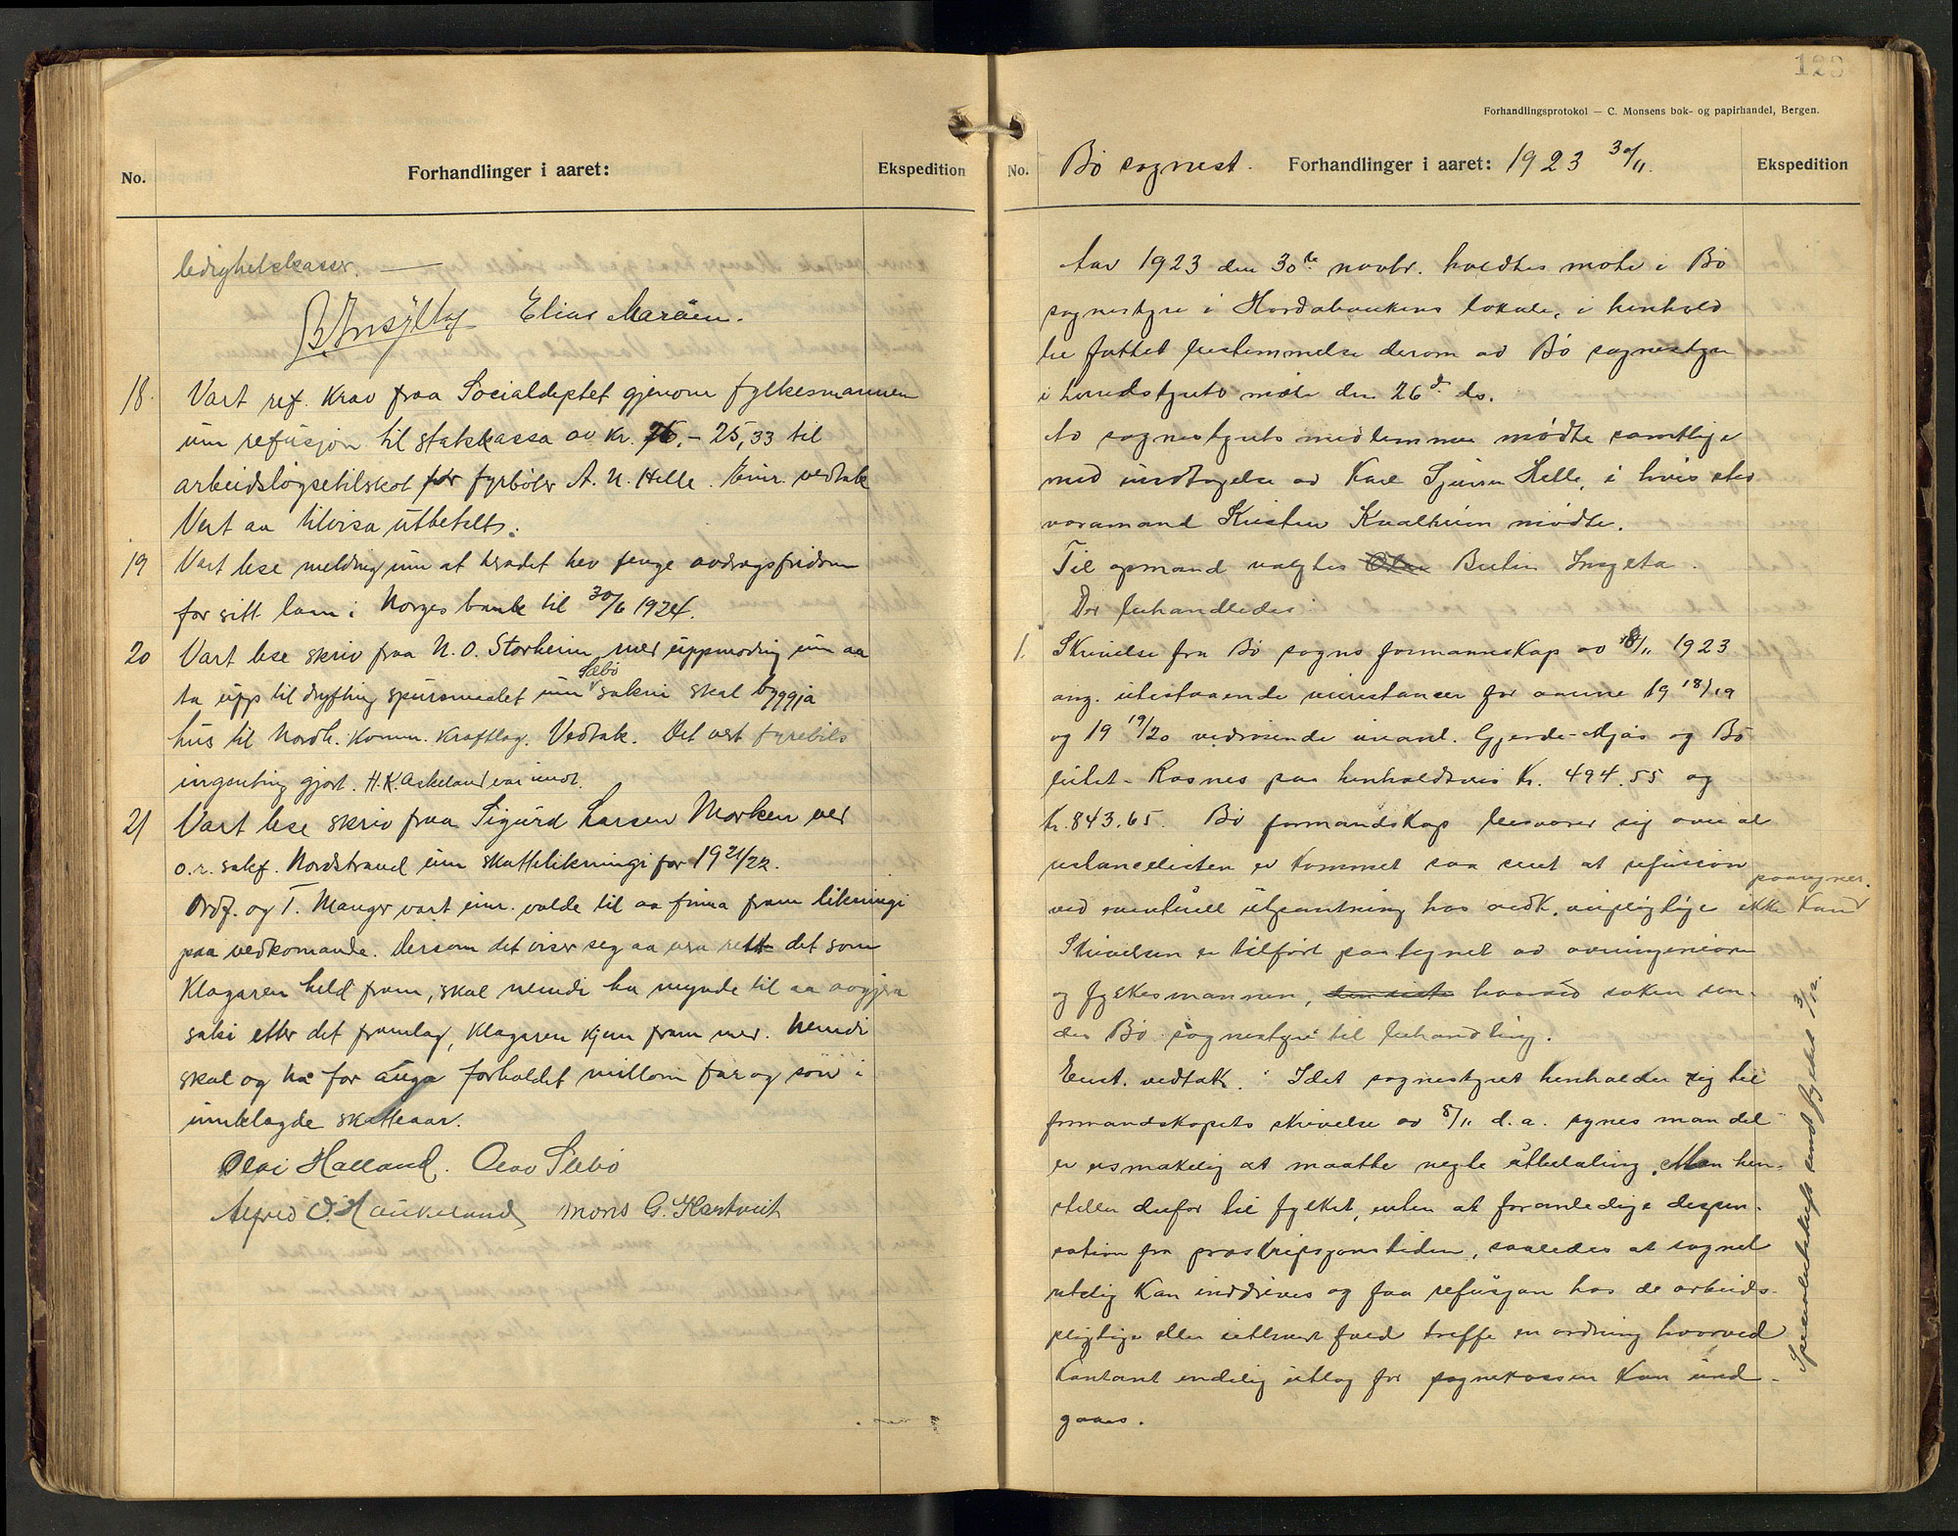 No.
Forhandlinger i aaret:
Ekspedition
ledighetskassr.
Elias Maraas.
18. Vart ref. krav fraa Socialdeptet gjenom fylkesmannen
um refusjon til statskassa av kr. 76.- 25,33 til
arbeidsløysetilskot for fyrbøter A. N. Helle. Einr. vedtak
Vert aa tilvisa utbetalt.
19 Vart lese melding um at heradet hev fenge avdragsfridom
for sitt laan i Norges bank til 30/6 1924.
20 Vart lese skriv fraa N. O. Storheim med uppmoding um aa
ta upp til drøfting spursmaalet um Sæbø sokni skal byggja
hus til Nordh. Komm. Kraftlag. Vedtak. Det vert fyrebils
ingenting gjort. H.K. Askeland var imot.
21 Vart lese skriv fraa Sigurd Larsen Morken ved
o.r. sakf. Nordstrand um skattelikningi for 1921/22.
Ordf. og T. Manger vart einr. valde til aa finna fram likningi
paa vedkomande. Dersom det viser seg aa vera rett det som
Klagaren held fram, skal nemdi ha mynde til aa avgjera
saki etter det framlag, klagaren kjem fram med. Nemdi
skal og ha for auga forholdet millom far og son i
innklagde skatteaar.
Olai Halland. Olav Sæbø
Alfred O. Haukeland Mons G. Hartveit
129
Forhandlingsprotokol — C. Monsens bok- og papirhandel, Bergen.
No.
Bø sognest. Forhandlinger i aaret: 1923 30/11.
Ekspedition
Aar 1923 den 30te novbr. holdtes møte i Bø
sognestyre i Hordabankens lokale, i henhold
til fattet bestemmelse derom av Bø sognestyre
i herredsstyrets møte den 26de ds.
Av sognestyrets medlemmer mødte samtlige
med undtagelse av Karl Sjursen Helle, i hvis sted
varamand Kristen Kvalheim mødte.
Til opmand valgtes Olai Bertin Insylta.
Der behandledes:
1. Skrivelse fra Bø sogns formannskap av 8/11 1923
ang. utestaaende veirestanser for aarene 1918/19
og 1919/20 vedrørende veianl. Gjerde-Mjøs og Bø
leitet - Rosnes paa henholdsvis Kr. 494.55 og
Kr. 843.65. Bø formandskap besværer sig over at
restanselisten er kommet saa sent at refusion
ved eventuell utpantning hos vedk. veipligtige ikke kand paaregnes.
Skrivelsen er tilført paategnet av aveiingeniøren
og fylkesmannen, den siste hvorved saken sen-
des Bø sognestyre til behandling.
Enst. vedtak. Idet sognestyret henholder sig til
formandskapets skrivelse av 8/11 d.a. synes man det
er usmakelig at maatte negte utbetaling. Man hen-
stiller derfor til fylket, enten at foranledige dispen-
sation fra preskripsjonstiden, saaledes at sognet
retslig kan inddrives og faa refusjon hos de arbeids-
pligtige eller iethvert fald treffe en ordning hvorved
kontant endelig utlæg for sognekassen kan und-
gaaes.
Specialutskrift sendt fylket 3/12.